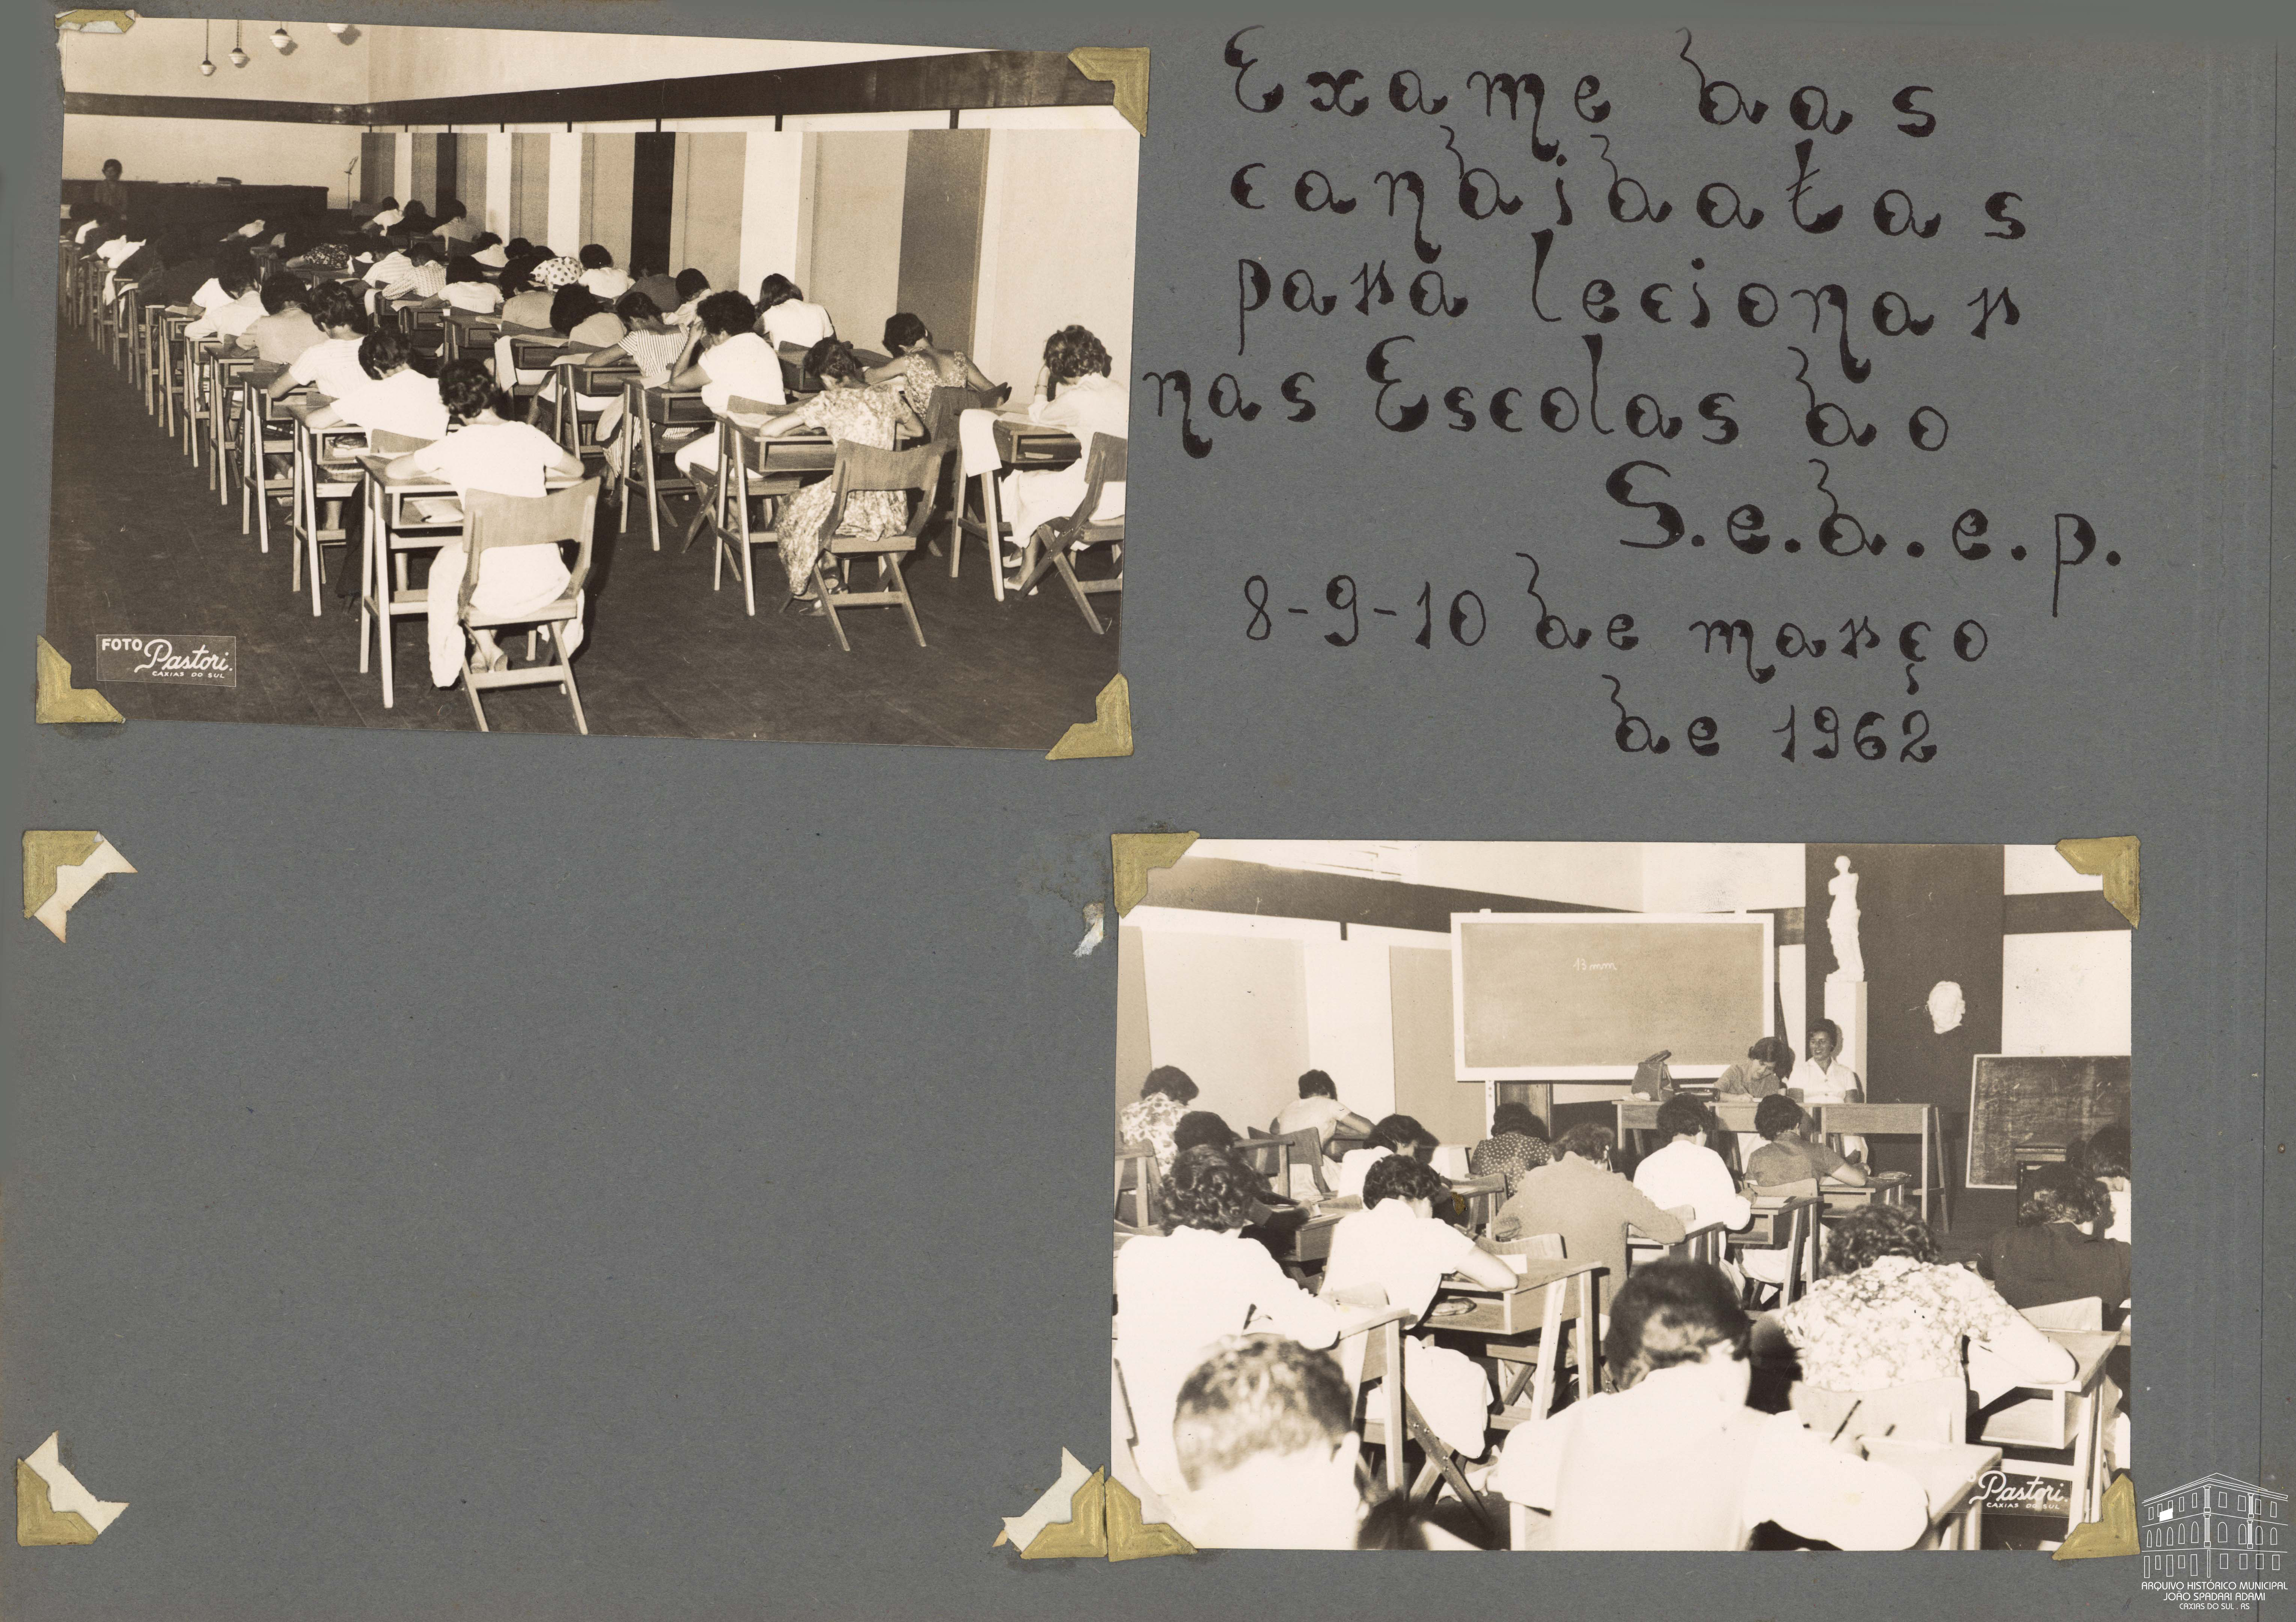 Exame das
candidatas
para lecionar
nas Escolas do
S.e.d.e.p.
8-9-10 de março
de 1962
FOTO Pastori.
CAXIAS DO SUL
13 mm
Pastori.
CAXIAS DO SUL
ARQUIVO HISTÓRICO MUNICIPAL
JOÃO SPADARI ADAMI
CAXIAS DO SUL . RS